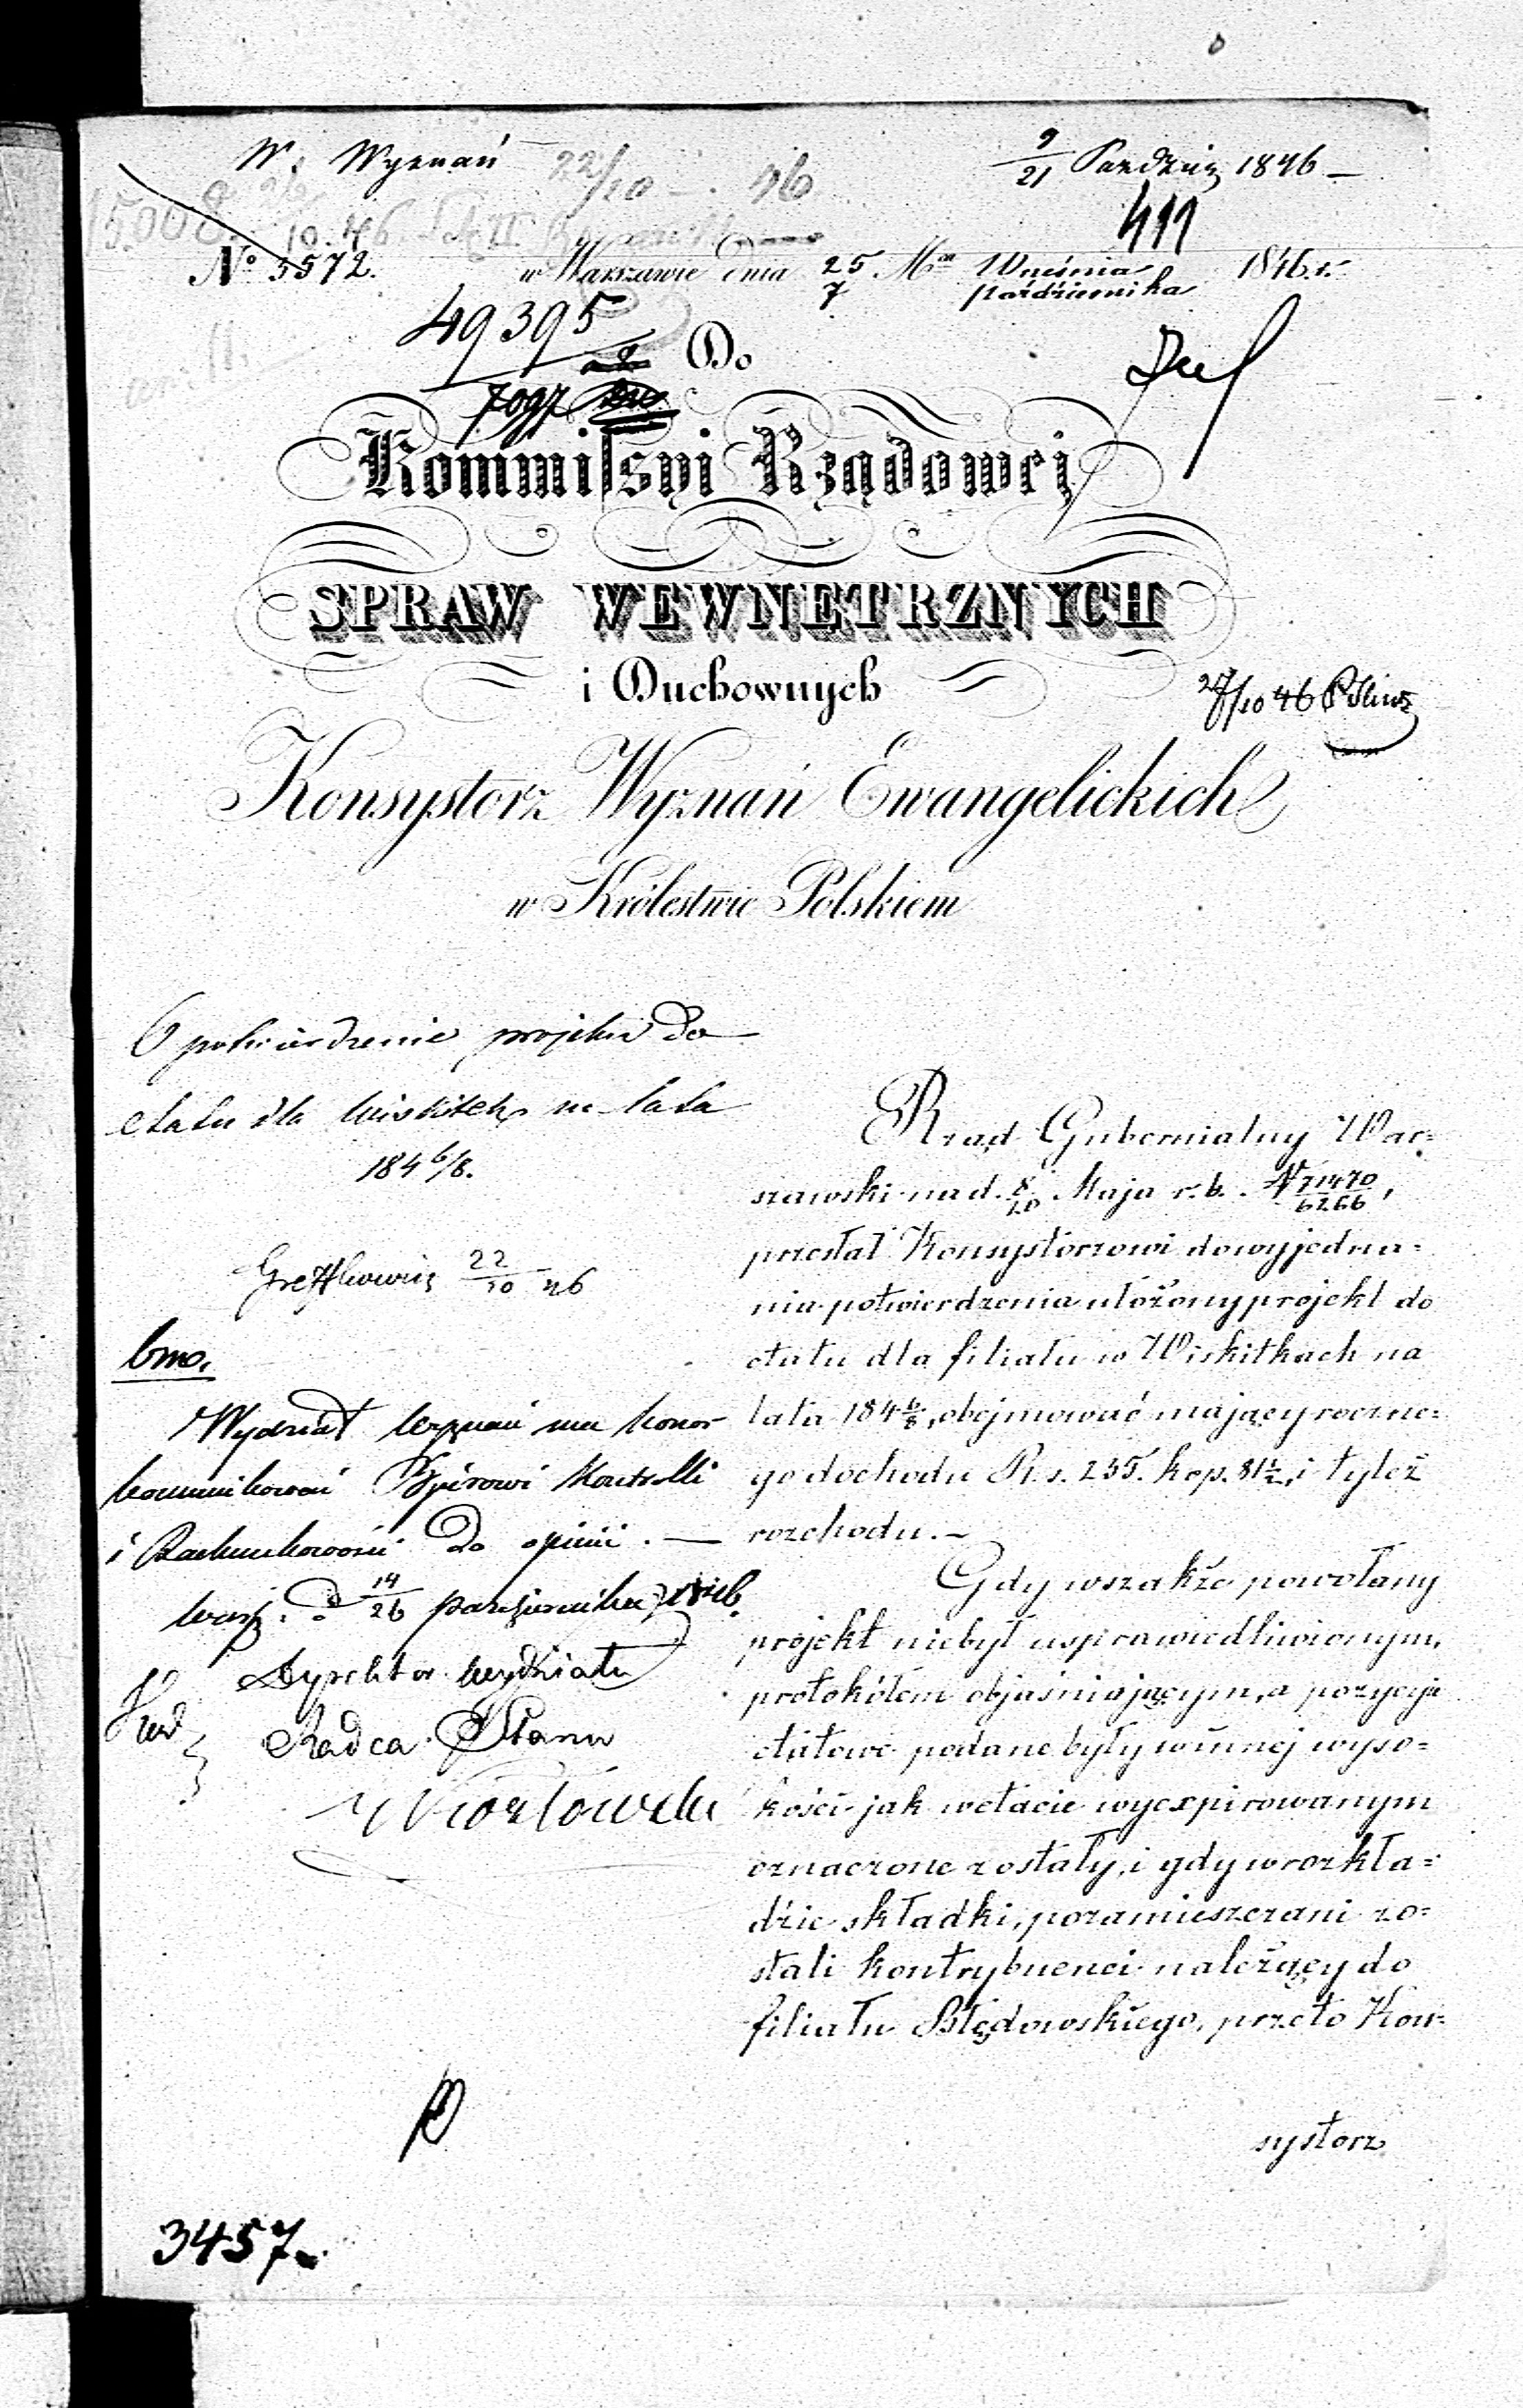 W. Wyznań 22/10 46
9/21 Paździer 1846
15008
10.46
411
No 5572.
w Warszawie dnia 25/7 Mca Września/października 1846 r.
49395
7097
Do
Kommissyi Rządowej
SPRAW WEWNĘTRZNYCH
i Duchownych
27/10 46
Konsystorz Wyznań Ewangelickich
w Królestwie Polskiem
O potwierdzenie projektu do
etatu dla Wiskitek na lata
184 6/8.
22/10 46
bmo.
Wydział Wyznań ma honor
kommunikować Biurowi Kontrolli
i Rachunkowości do opinii. —
warsz. d 14/26 października 1846.
Dyrektor Wydziału
Radca Stanu
Rząd Gubernialny War=
szawski nad. 8/20 Maja r. b. N 71470/6266,
przesłał Konsystorzowi do wyjedna=
nia potwierdzenia ułożony projekt do
etatu dla filiału w Wiskitkach na
lata 184 6/8, obejmować mający roczne=
go dochodu R. s. 235. kop. 81½, i tyleż
rozchodu. –
Gdy wszakże powołany
projekt niebył usprawiedliwionym,
protokółem objaśniającym, a pozycyje
etatowe podane były w innej wyso=
kości jak w etacie wyexpirowanym
oznaczone zostały, i gdy w rozkła=
dzie składki, pozamieszczani zo=
stali kontrybuenci należący do
filiału Błędowskiego, przeto Kon=
systorz
3457